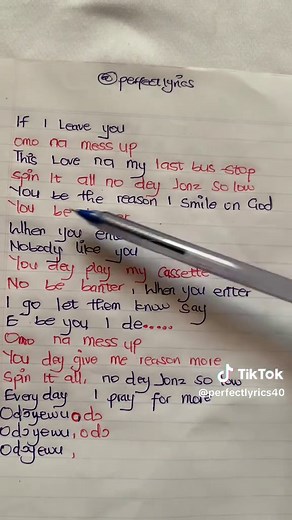 @perfectlyrics
If I Leave you
omo na mess up
This Love na my last bus stop
Spin It all no dey Jonz so low
You be the reason I smile on God
You be
When you
Nobody like you
You dey play my cassette
No be banter, When you enter
I go let them know say
E be you I de.....
Omo na mess up
You dey give me reason more
Spin It all, no dey Jonz so low
Every day I pray for more
Odɔyewu odɔ
Odɔyewu, odɔ
Odɔyewu,
TikTok
@perfectlyrics40